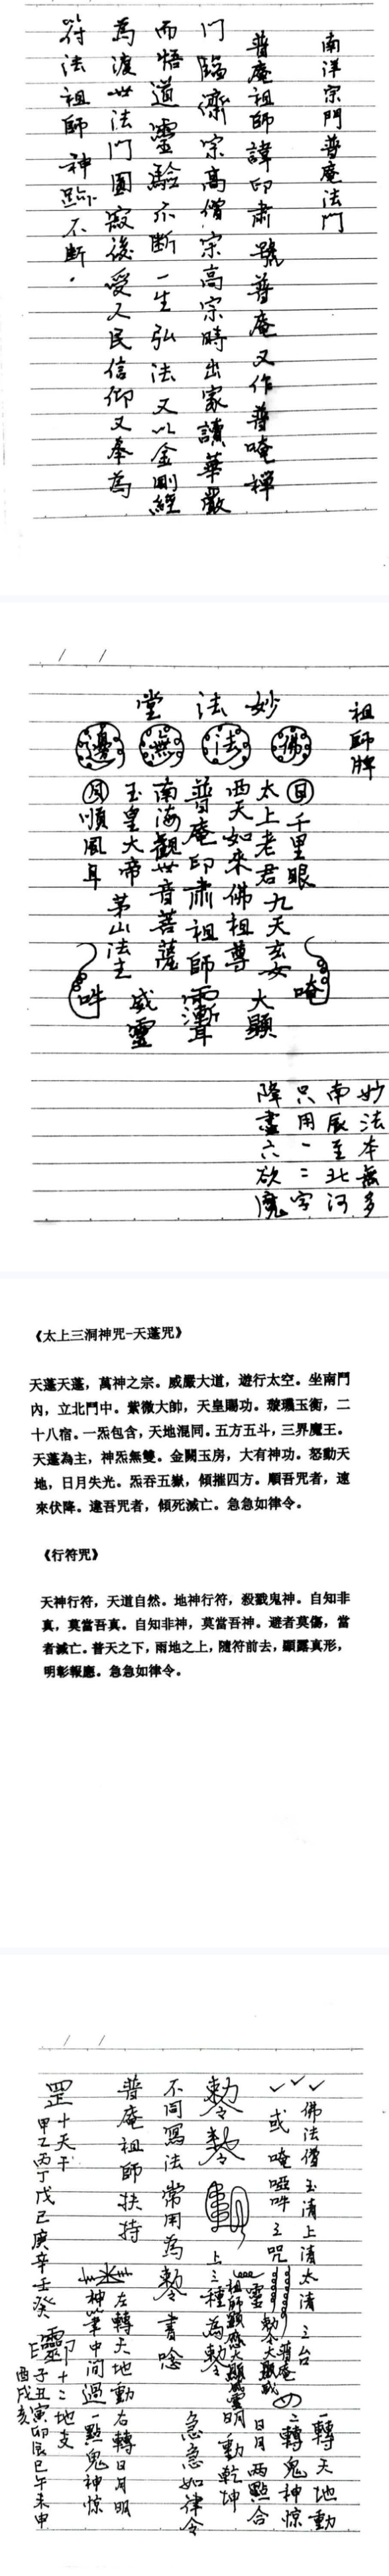 南洋宗門普庵法門
普庵祖師諱印肅號普庵又作普唵禪
門臨濟宗高僧宋高宗時出家讀華嚴
而悟道靈驗不斷一生弘法又以金剛經
為渡世法門圓寂後受人民信仰又奉為
符法祖師神跡不斷.
祖師牌
妙法堂
佛法無邊
日千里眼
太上老君九天玄女
西天如來佛祖尊大顯
普庵印肅祖師
南海觀世音菩薩威靈
玉皇大帝茅山法主
月順風耳
唵
吽
妙法本無多
南辰至北河
只用一二字
降盡六欲魔
《太上三洞神咒-天蓬咒》
天蓬天蓬，萬神之宗。威嚴大道，遊行太空。坐南鬥
內，立北鬥中。紫微大帥，天皇賜功。璇璣玉衡，二
十八宿。一炁包含，天地混同。五方五斗，三界魔王。
天蓬為主，神炁無雙。金闕玉房，大有神功。怒動天
地，日月失光。炁吞五嶽，傾摧四方。順吾咒者，速
來伏降。違吾咒者，傾死滅亡。急急如律令。
《行符咒》
天神行符，天道自然。地神行符，殺戮鬼神。自知非
真，莫當吾真。自知非神，莫當吾神。避者莫傷，當
者滅亡。普天之下，雨地之上，隨符前去，顯露真形，
明彰報應。急急如律令。
佛法僧玉清上清太清三台
或唵啞吽三咒
一轉天地動
二轉鬼神惊
日月兩點合
明動乾坤
上三種為勅令
急急如律令
不同寫法常用為勅令書唸
普庵祖師扶持
左轉天地動右轉日月明
神筆中間過一點鬼神惊
罡十天干
甲乙丙丁戊己庚辛壬癸
靈印十二地支
子丑寅卯辰巳午未申
酉戌亥